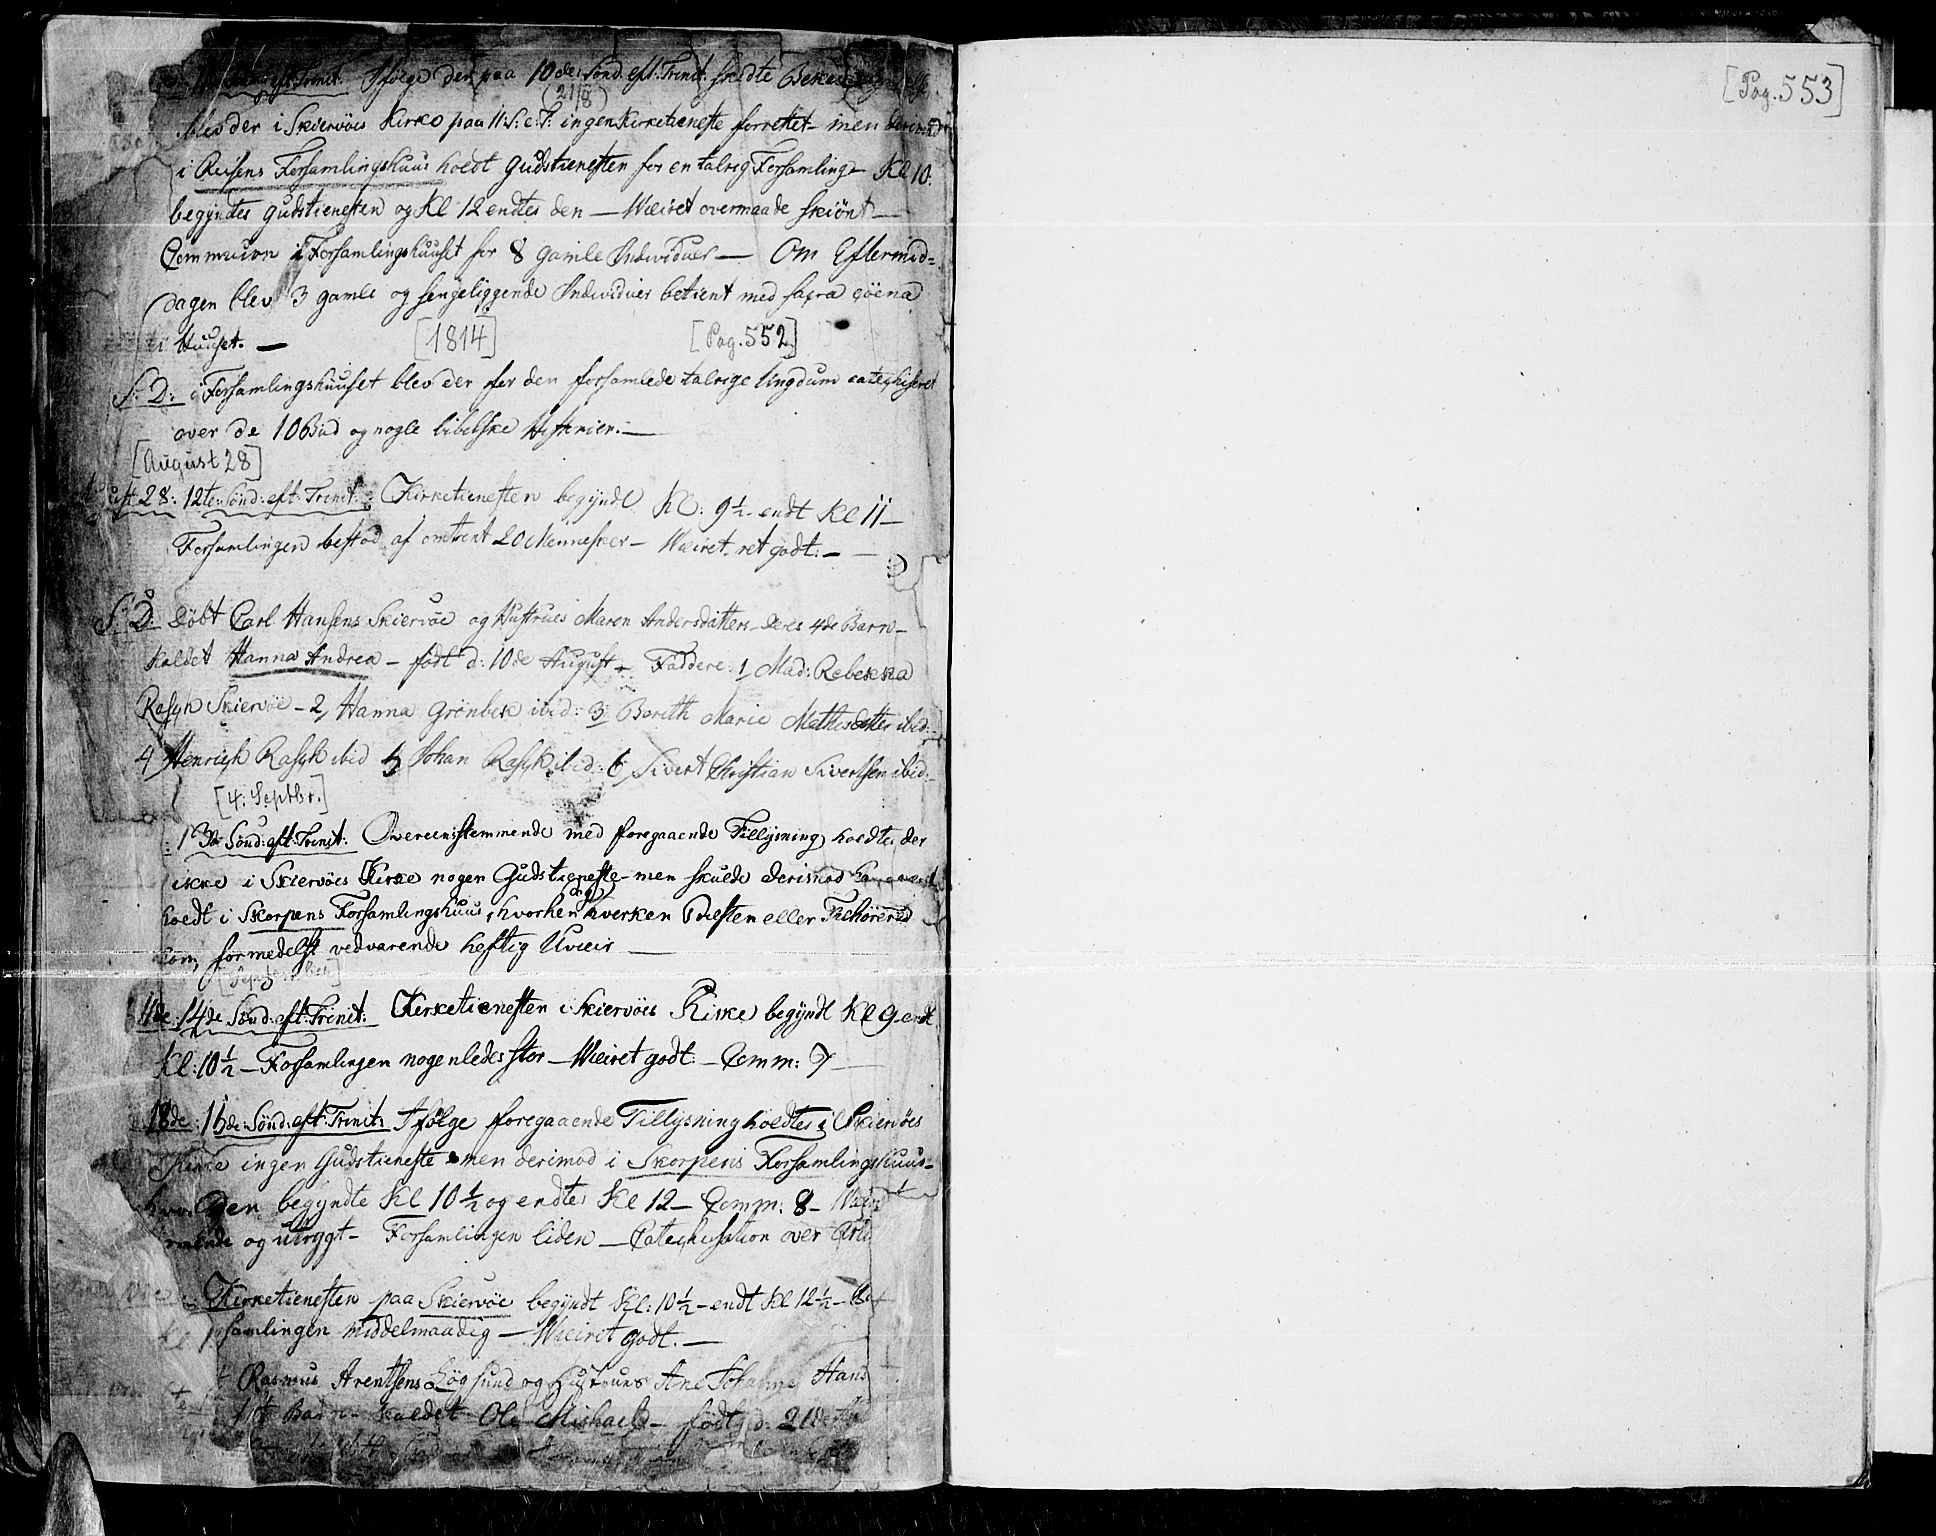 Sönd: eft: Trinit: Ifölge den paa 10de Sönd. eft. Trinit. skedte
(21/8)
blev der i Skiervöes Kirke paa 11: S: e: T: ingen Kirketieneste forrettet – men derimod
i Reisens Forsamlingshuus holdt Gudstienesten for en talrig Forsamling – Kl 10.
begyndtes Gudstienesten og Kl 12 endtes den — Wæiret overmaade skiönt —
Commuion i Forsamlingshuuset for 8 gamle Individuer — Om Eftermid=
dagen blev 3 gamle og sengeliggende Individuer betient med sacra cöena
i Huuset. —
[1814] [Pag. 552]
S: D: i Forsamlingshuuset blev der for den forsamlede talrige Ungdum catechiseret
over de 10 Bud og nogle bibelske Historier. —
[August 28]
28: 12te Sönd: eft: Trinit: Kirketienesten begyndt Kl: 9 1/2 – endt Kl 11 –
Forsamlingen bestod af omtrent 20 Mennesker – Wæiret ret godt: –
S: D: Döbt Carl Hansens Skiervöe og Hustrues Maren Andersdatters – deres 4de Barn –
kaldet Hanna Andrea – född d: 10de August – Faddere: 1, Mad: Rebekka
Rasch Skiervöe – 2, Hanna Grönbek ibid: 3 Bereth Marie Mathisdatter ibid:
4, Henrich Rasch ibid 5 Johan Rasch ibid: 6, Sivert Christian Sivertsen ibid: –
[4: Septbr.]
13de Sönd: eft: Trinit: Overeensstemmende med foregaaende Tillysning, holdtes der
ikke i Skiervöes Kirke nogen Gudstieneste – men skulde derimod have været
holdt i Skorpens Forsamlingshuus, hvorhen (og) hverken Præsten eller Tilhörere
kom, formedelst vedvarende heftig Uvæir —
[September]
11de: 14de Sönd: eft: Trinit: Kirketienesten i Skiervöes Kirke begyndt Kl 9. endt
Kl: 10 1/2 – Forsamlingen nogenledes stor – Wæiret godt. – Comm: 7 —
18de: 15de: Sönd: eft: Trinit: Ifölge foregaaende Tillysning holdtes i Skiervöes
Kirke ingen Gudstieneste – men derimod i Skorpens Forsamlingshuus –
hvor den begyndte Kl 10 1/2 og endtes Kl 12 – Comm: 8 –
og utrygt – Forsamlingen liden – Catechisation over
Kirketienesten paa Skiervöe begyndt Kl: 10 1/2 – endt Kl 12 1/2 –
Forsamlingen middelmaadig – Wæiret godt. –
Rasmus Arentsens Lögsund og Hustrues Ane Johanna Hans
Barn – kaldet Ole Michael – född d. 21de
[Pag. 553]